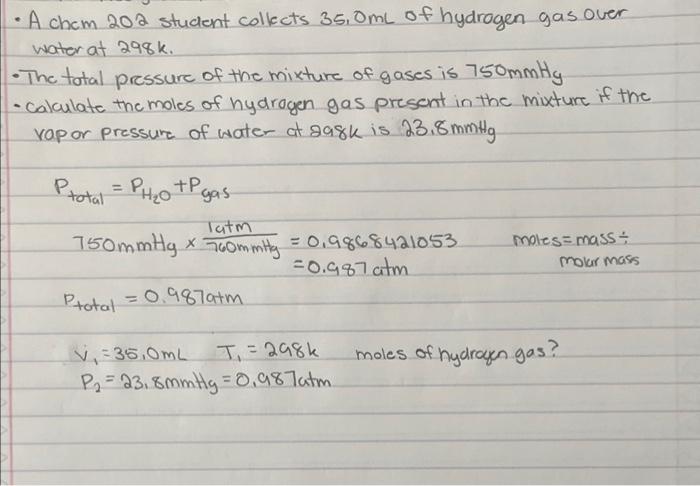 • A chem 202 student collects 35.0mL of hydrogen gas over
water at 298K.
• The total pressure of the mixture of gases is 750mmHg
• calculate the moles of hydrogen gas present in the mixture if the
vapor pressure of water at 298K is 23.8mmHg
P total = P H₂O + P gas
750mmHg × 1atm/760mmHg = 0.9868421053 moles = mass ÷
= 0.987 atm molar mass
P total = 0.987atm
V₁ = 35.0mL T₁ = 298K moles of hydrogen gas?
P₂ = 23.8mmHg = 0.987atm